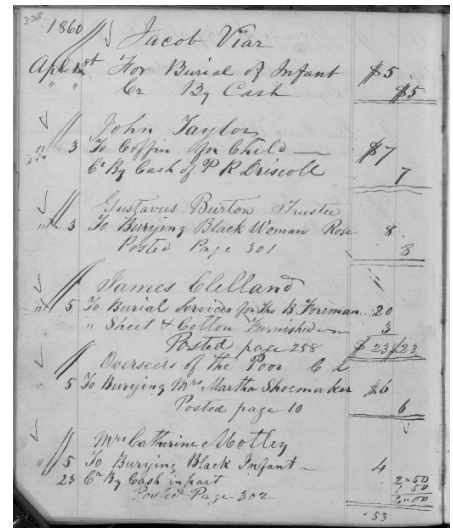 1860
Jacob Viar
Apl 1st For Burial of Infant $5
" " Cr By Cash $5
John Taylor
" 3 To Coffin for Child — $7
Cr By Cash of P R Driscoll 7
Gustavus Burton Trustee
" 3 To Burying Black Woman Rose 8
Posted Page 301 8
James Clelland
" 5 To Burial Services for the B. Foreman 20
" Sheet & Cotton Furnished 3
Posted page 258 $23 $23
Overseers of the Poor
5 To Burying Mrs Martha Shoemaker $6
Posted page 10 6
Mrs Catherine Motley
" 5 To Burying Black Infant — 4
23 Cr By Cash in part 2.50
Posted Page 302
53